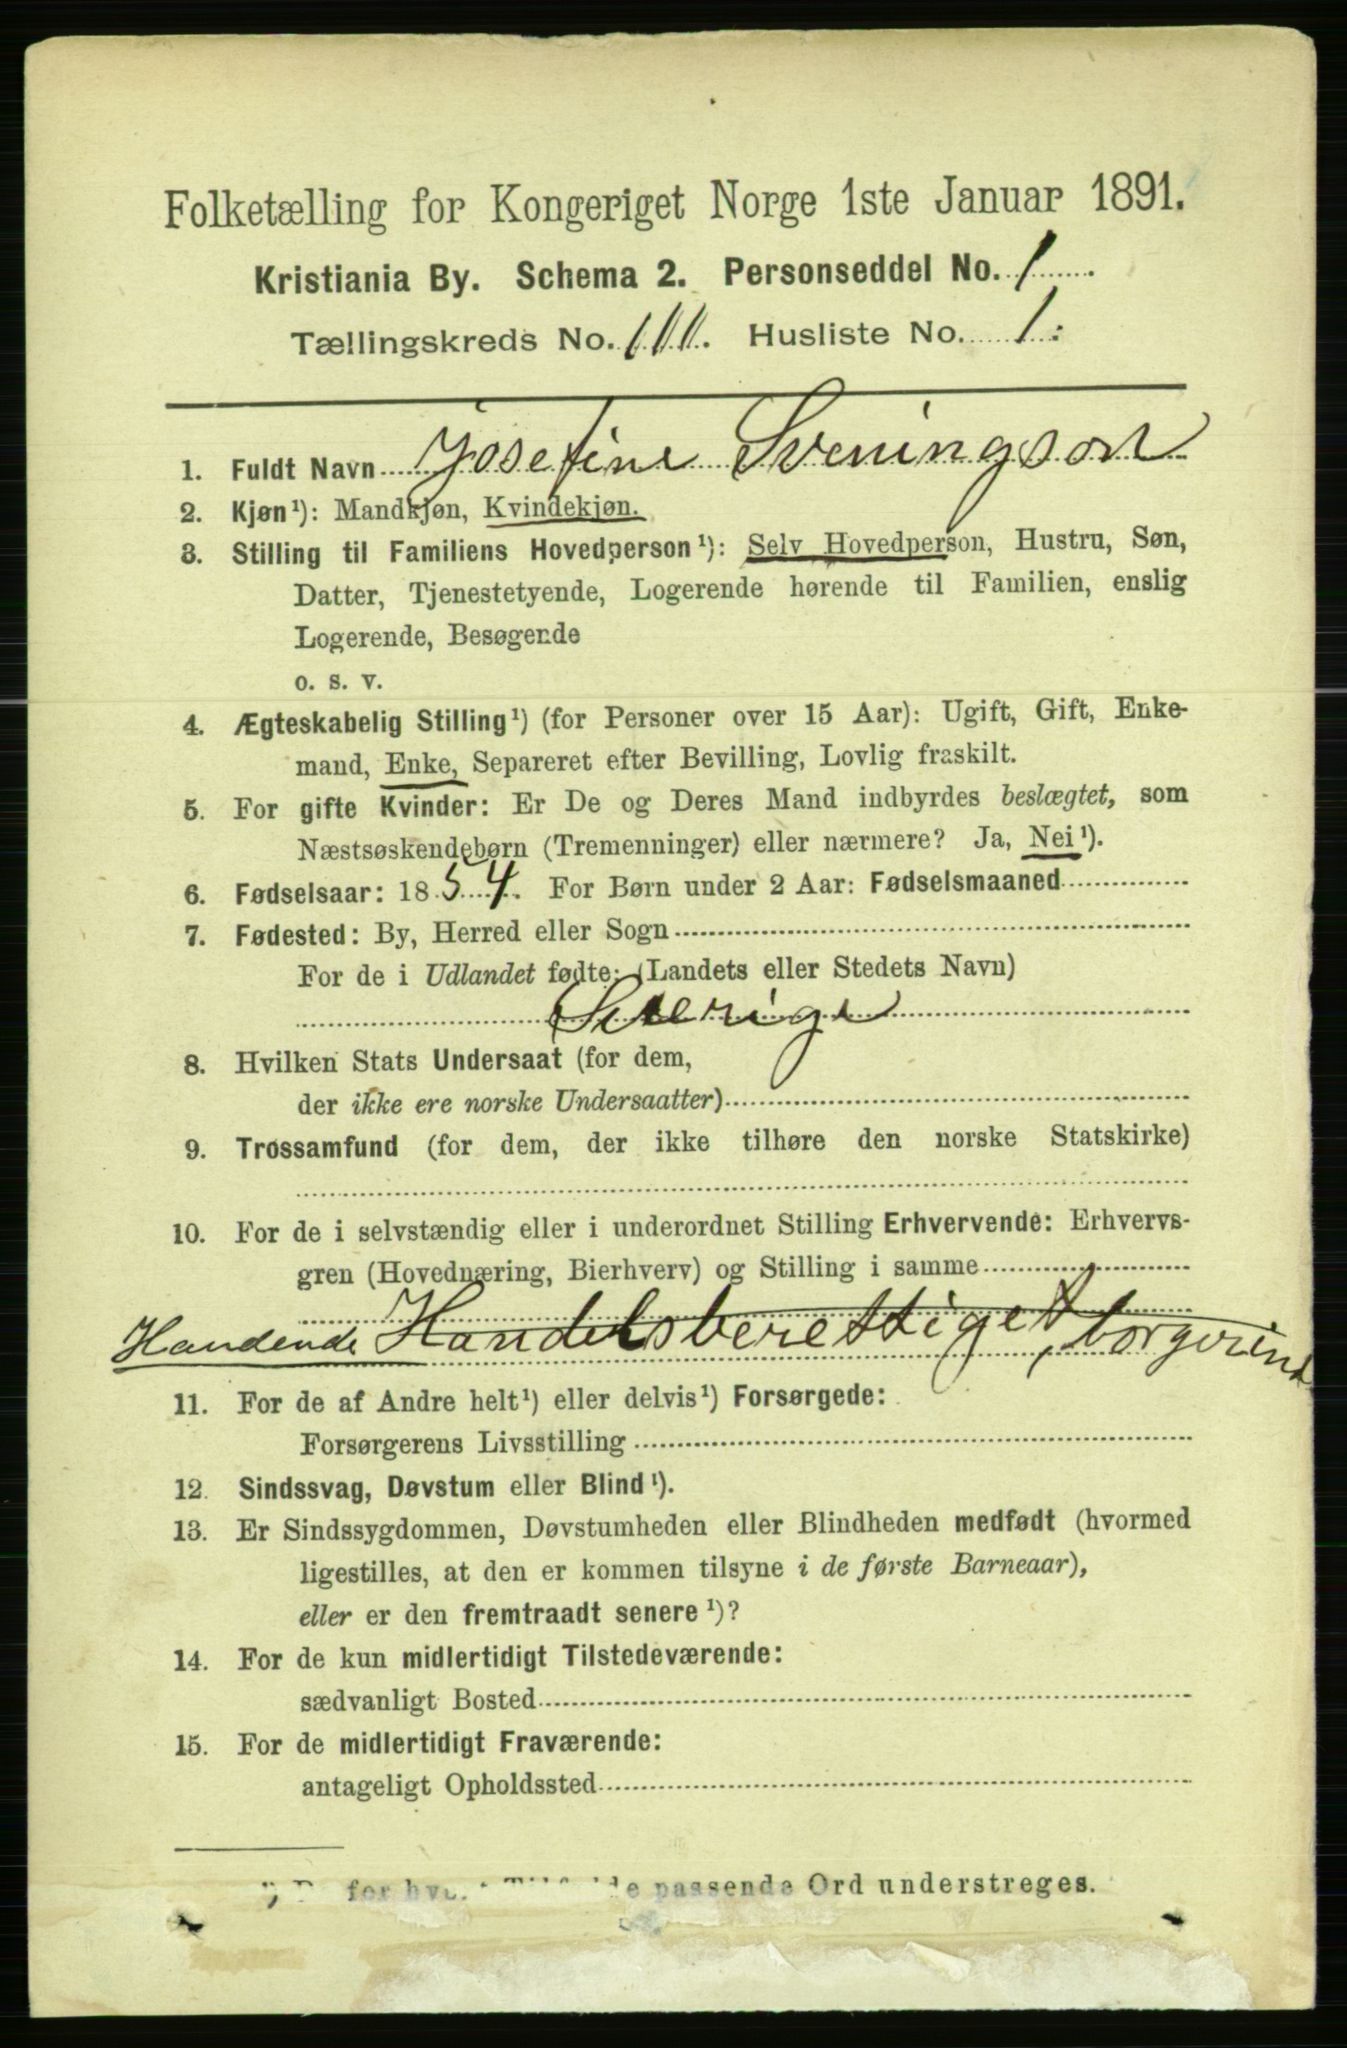 Folketælling for Kongeriget Norge 1ste Januar 1891.
Kristiania By. Schema 2. Personseddel No. 1
Tællingskreds No. 111. Husliste No. 1.
1. Fuldt Navn Josefine Sveningson
2. Kjøn¹): Mandkjøn, Kvindekjøn.
3. Stilling til Familiens Hovedperson¹): Selv Hovedperson, Hustru, Søn,
Datter, Tjenestetyende, Logerende hørende til Familien, enslig
Logerende, Besøgende
o. s. v.
4. Ægteskabelig Stilling¹) (for Personer over 15 Aar): Ugift, Gift, Enke-
mand, Enke, Separeret efter Bevilling, Lovlig fraskilt.
5. For gifte Kvinder: Er De og Deres Mand indbyrdes beslægtet, som
Næstsøskendebørn (Tremenninger) eller nærmere? Ja, Nei¹).
6. Fødselsaar: 1854. For Børn under 2 Aar: Fødselsmaaned
7. Fødested: By, Herred eller Sogn
For de i Udlandet fødte: (Landets eller Stedets Navn)
Sverige
8. Hvilken Stats Undersaat (for dem,
der ikke ere norske Undersaatter)
9. Trossamfund (for dem, der ikke tilhøre den norske Statskirke)
10. For de i selvstændig eller i underordnet Stilling Erhvervende: Erhvervs-
gren (Hovednæring, Bierhverv) og Stilling i samme
Handelsberettiget, borgerind
11. For de af Andre helt¹) eller delvis¹) Forsørgede:
Forsørgerens Livsstilling
12. Sindssvag, Døvstum eller Blind¹).
13. Er Sindssygdommen, Døvstumheden eller Blindheden medfødt (hvormed
ligestilles, at den er kommen tilsyne i de første Barneaar),
eller er den fremtraadt senere¹)?
14. For de kun midlertidigt Tilstedeværende:
sædvanligt Bosted
15. For de midlertidigt Fraværende:
antageligt Opholdssted
for passende Ord understreges.